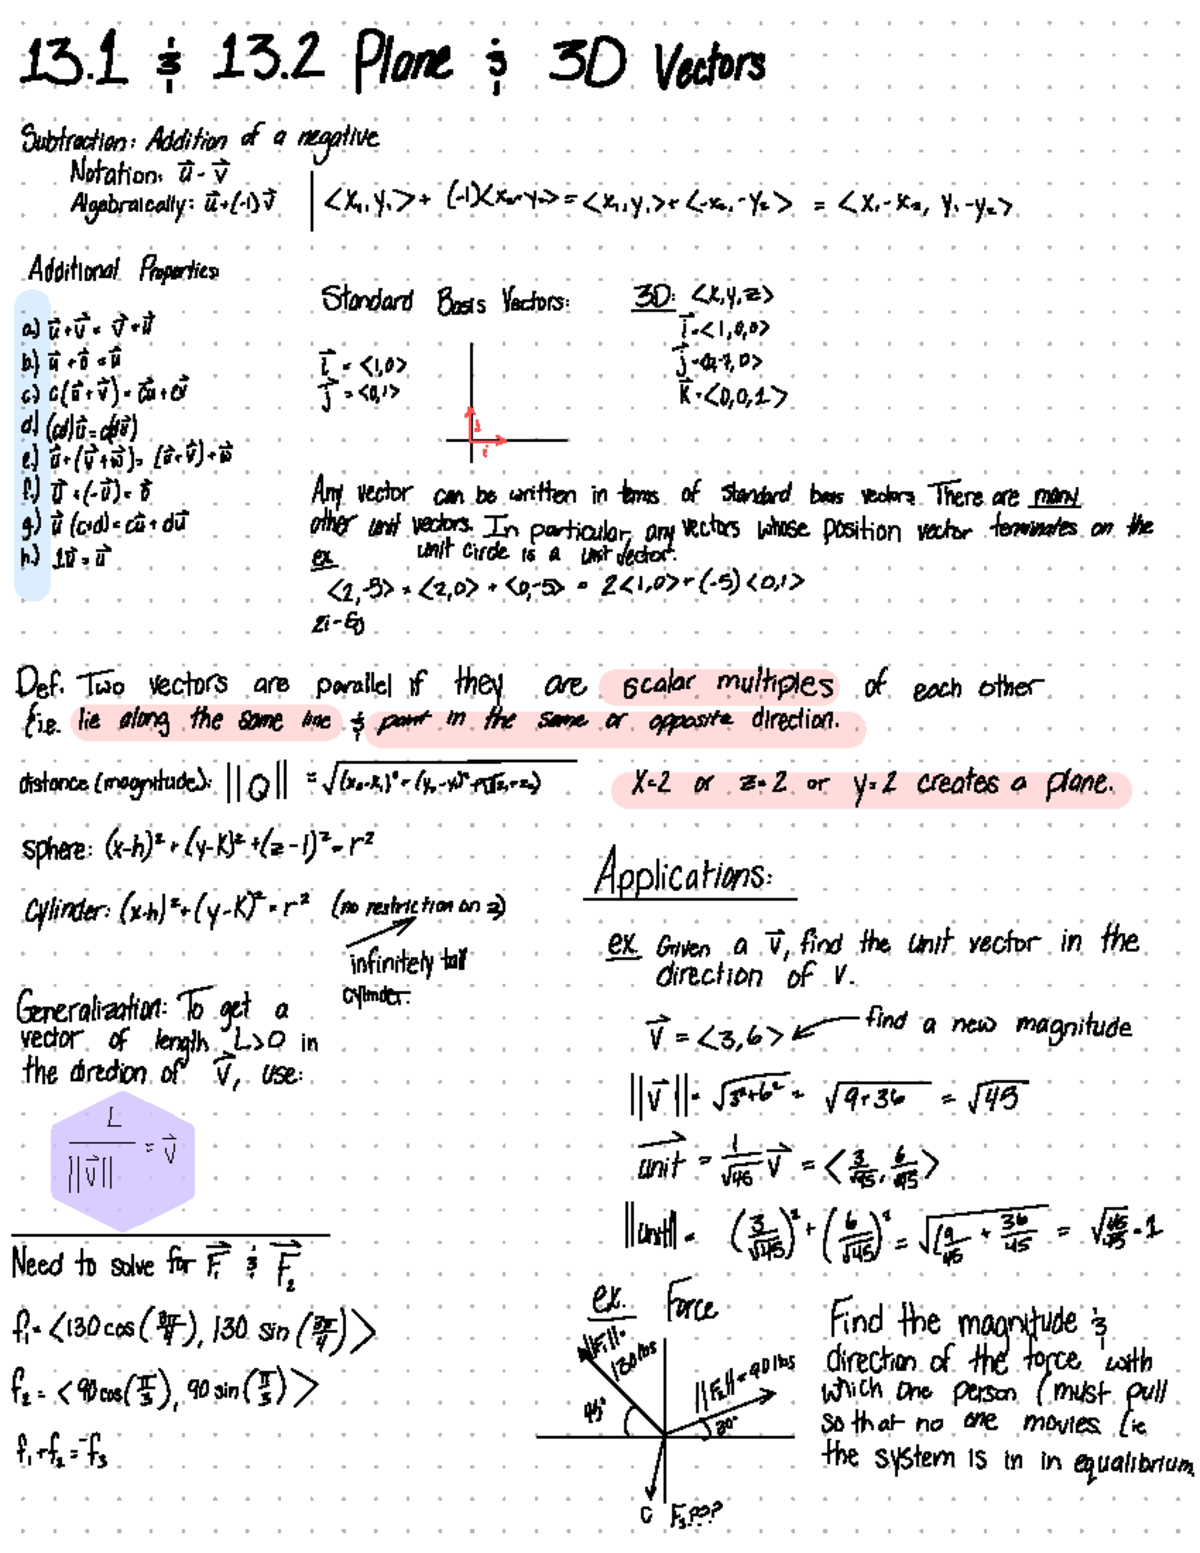 13.1 & 13.2 Plane & 3D Vectors
Subtraction: Addition of a negative
Notation: u⃗ - v⃗
Algebraically: u⃗+(-1)v⃗
<x₁,y₁> + (-1)<x₂,y₂> = <x₁,y₁> + <-x₂,-y₂> = <x₁-x₂, y₁-y₂>
Additional Properties
a.) u⃗+v⃗ = v⃗+u⃗
b.) u⃗+0⃗ = u⃗
c.) c(u⃗+v⃗) = cu⃗+cv⃗
d.) (cd)u⃗ = c(du⃗)
e.) u⃗+(v⃗+w⃗) = (u⃗+v⃗)+w⃗
f.) u⃗+(-u⃗) = 0⃗
g.) u⃗(c+d) = cu⃗+du⃗
h.) 1u⃗ = u⃗
Standard Basis Vectors:
i⃗ = <1,0>
j⃗ = <0,1>
j
i
3D: <x,y,z>
i⃗ = <1,0,0>
k⃗ = <0,0,1>
Any vector can be written in terms of standard basis vectors. There are many
other unit vectors. In particular, any vectors whose position vector terminates on the
unit circle is a unit vector.
ex
<2,-5> = <2,0> + <0,-5> = 2<1,0> + (-5)<0,1>
2i-5j
Def. Two vectors are parallel if they are scalar multiples of each other
(i.e. lie along the same line & point in the same or opposite direction.
distance (magnitude): = √(x₂-x₁)²+(y₂-y₁)²+(z₂-z₁)
x=2 or z=2 or y=2 creates a plane.
sphere: (x-h)²+(y-k)²+(z-l)²=r²
Cylinder: (x-h)²+(y-k)²=r² (no restriction on z)
infinitely tall
cylinder.
Generalization: To get a
vector of length L>0 in
the direction of v⃗, use:
L
‖v⃗‖ = v⃗
Applications:
ex. Given a v⃗, find the unit vector in the
direction of v.
v⃗ = <3,6> find a new magnitude
‖v⃗‖ = √3²+6² = √9+36 = √45
unit = 1/√45 v⃗ = <3/√45, 6/√45>
‖unit‖ = (3/√45)² + (6/√45)² = √(9/45 + 36/45 = √45/45 = 1
Need to solve for F₁ & F₂
f₁ = <130 cos(3π/4), 130 sin(3π/4)>
f₂ = <90 cos(π/3), 90 sin(π/3)>
f₁+f₂ = -f₃
ex. Force
‖F₁‖=
130 lbs
‖F₂‖ = 90 lbs
45°
30°
C F₃???
Find the magnitude &
direction of the force with
which one person C must pull
so that no one movies (ie
the system is in in equalibrium